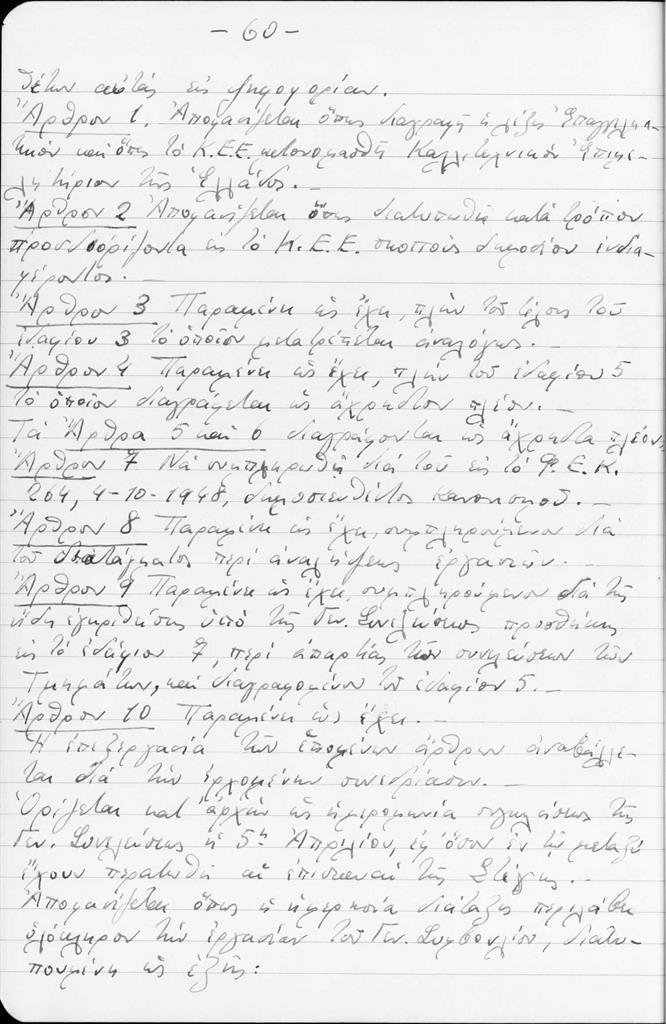 - 60 -
θέτων αὐτάς εἰς ψηφοφορίαν.
Ἄρθρον 1. Ἀποφασίζεται ὅπως διαγραφῇ ἡ λέξις Ἐπαγγελμα-
τικόν καί ὅπως τό Κ.Ε.Ε. μετονομασθῇ Καλλιτεχνικόν Ἐπιμε-
λητήριον τῆς Ἑλλάδος. —
Ἄρθρον 2 Ἀποφασίζεται ὅπως διατυπωθῇ κατά τρόπον
προσδιορίζοντα εἰς τό Κ.Ε.Ε. σκοπούς δημοσίου ἐνδια-
φέροντος. —
Ἄρθρον 3 Παραμένει ὡς ἔχει, πλήν τοῦ τέλους τοῦ
ἐδαφίου 3 τό ὁποῖον μετατρέπεται ἀναλόγως. —
Ἄρθρον 4 Παραμένει ὡς ἔχει, πλήν τοῦ ἐδαφίου 5
τό ὁποῖον διαγράφεται ὡς ἄχρηστον πλέον. —
Τά Ἄρθρα 5 καί 6 διαγράφονται ὡς ἄχρηστα πλέον.
Ἄρθρον 7 Νά συμπληρωθῇ διά τοῦ εἰς τό Φ.Ε.Κ.
264, 4-10-1948, δημοσιευθέντος κανονισμοῦ. —
Ἄρθρον 8 Παραμένει ὡς ἔχει, συμπληρούμενον διά
τοῦ διατάγματος περί ἀναλήψεως ἐργασιῶν. —
Ἄρθρον 9 Παραμένει ὡς ἔχει, συμπληρούμενον διά τῆς
ἤδη ἐγκριθείσης ὑπό τῆς Γεν. Συνελεύσεως προσθήκης
εἰς τό ἐδάφιον 7, περί ἀπαρτίας τῶν συνελεύσεων τῶν
Τμημάτων, καί διαγραφομένου τοῦ ἐδαφίου 5. —
Ἄρθρον 10 Παραμένει ὡς ἔχει. —
Ἡ ἐπεξεργασία τῶν ἑπομένων ἄρθρων ἀναβάλλε-
ται διά τήν ἐρχομένην συνεδρίασιν. —
Ὁρίζεται κατ' ἀρχήν ὡς ἡμερομηνία συγκλήσεως τῆς
Γεν. Συνελεύσεως ἡ 5η Ἀπριλίου, ἐφ' ὅσον ἐν τῷ μεταξύ
ἔχουν περατωθῇ αἱ ἐπισκευαί τῆς Στέγης. —
Ἀποφασίζεται ὅπως ἡ ἡμερησία διάταξις περιλάβῃ
ὁλόκληρον τήν ἐργασίαν τοῦ Γεν. Συμβουλίου, διατυ-
πουμένη ὡς ἑξῆς: